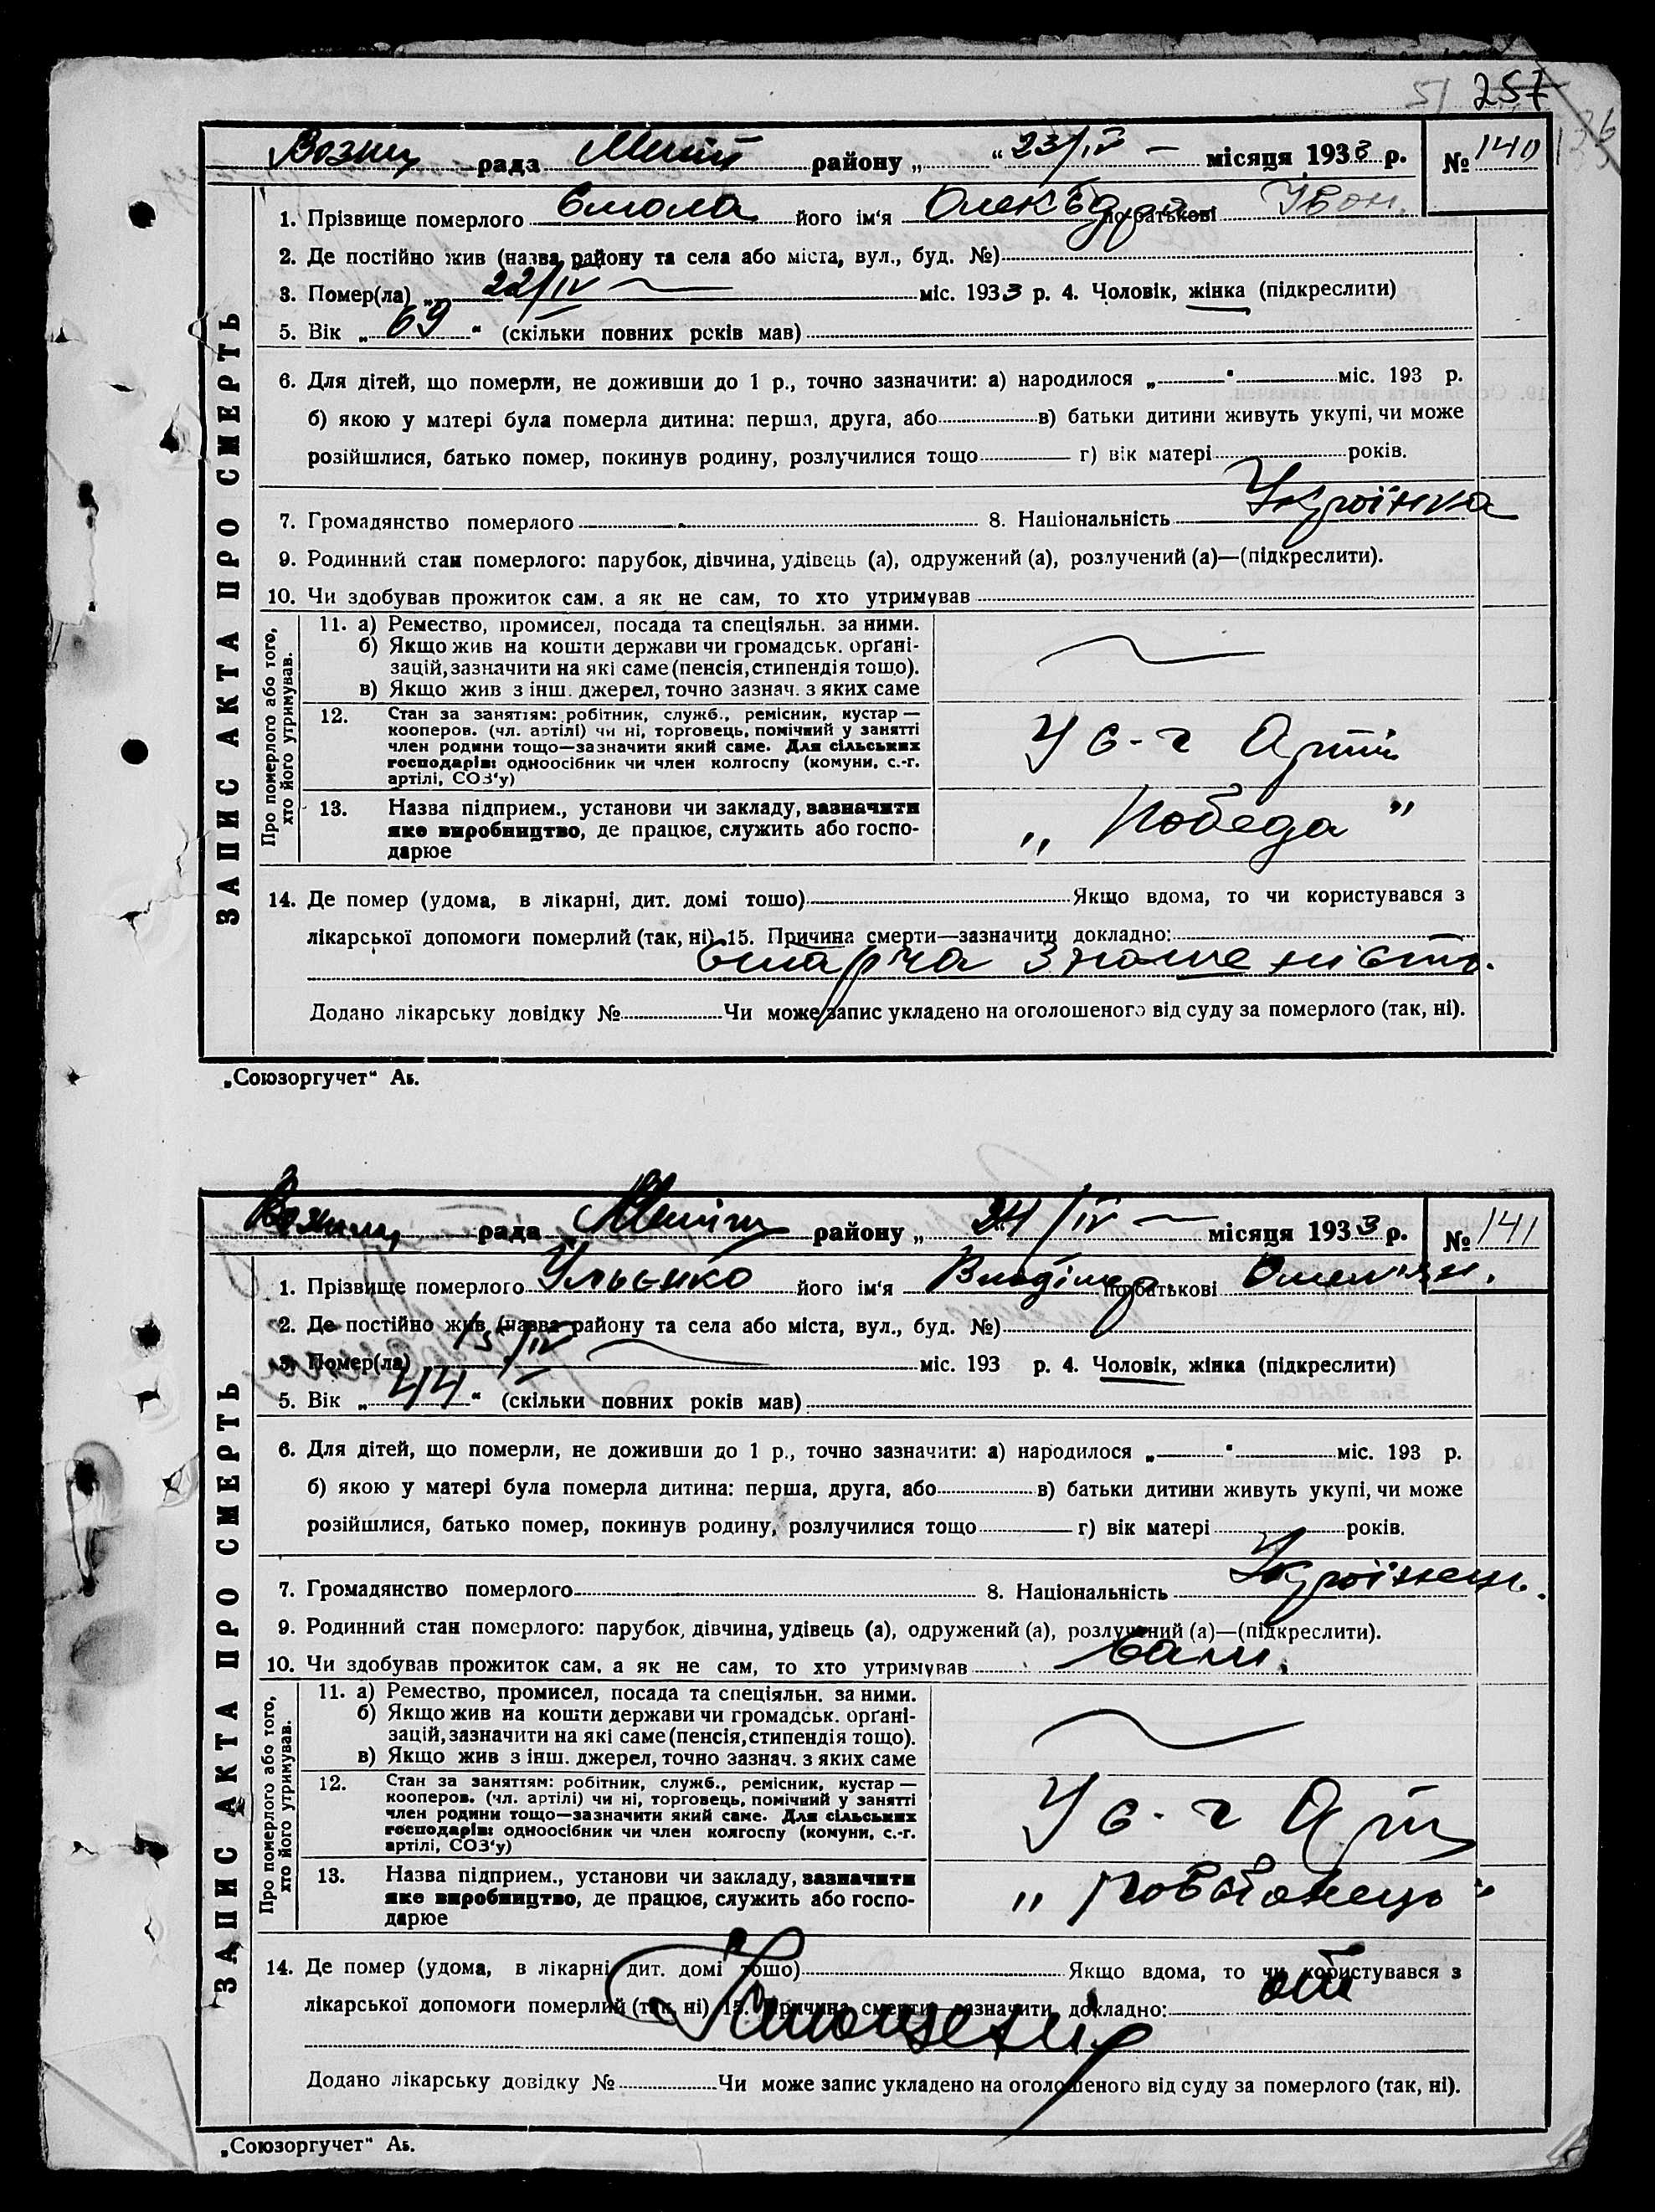 51 257
136
рада району „ “ 23/IV — місяця 1933 р. № 140
1. Прізвище померлого Смола його ім‘я по-батькові Іван.
2. Де постійно жив (назва району та села або міста, вул., буд. №)
3. Помер(ла) „ 22/IV міс. 1933 р. 4. Чоловік, жінка (підкреслити)
5. Вік „ 69 “ (скільки повних років мав)
6. Для дітей, що померли, не доживши до 1 р., точно зазначити: а) народилося „ “ міс. 193 р.
б) якою у матері була померла дитина: перша, друга, або в) батьки дитини живуть укупі, чи може
розійшлися, батько помер, покинув родину, розлучилися тощо г) вік матері років.
7. Громадянство померлого 8. Національність Українка
9. Родинний стан померлого: парубок, дівчина, удівець (а), одружений (а), розлучений (а)—(підкреслити).
10. Чи здобував прожиток сам, а як не сам, то хто утримував
Про померлого або того, хто його утримував.
11. а) Ремество, промисел, посада та спеціяльн. за ними.
б) Якщо жив на кошти держави чи громадськ. орґані-
зацій, зазначити на які саме (пенсія, стипендія тощо).
в) Якщо жив з інш. джерел, точно зазнач. з яких саме
12. Стан за заняттям: робітник, служб., ремісник, кустар —
кооперов. (чл. артілі) чи ні, торговець, помічний у занятті
член родини тощо—зазначити який саме. Для сільських
господарів: одноосібник чи член колгоспу (комуни, с.-г.
артілі, СОЗ‘у)
У с-г Арті
13. Назва підприєм., установи чи закладу, зазначити
яке виробництво, де працює, служить або госпо-
дарює
„ Победа "
14. Де помер (удома, в лікарні, дит. домі тощо) Якщо вдома, то чи користувався з
лікарської допомоги померлий (так, ні) 15. Причина смерти—зазначити докладно:
старча
Додано лікарську довідку № Чи може запис укладено на оголошеного від суду за померлого (так, ні).
ЗАПИС АКТА ПРО СМЕРТЬ
„Союзоргучет“ Аь.
рада району „ 24/IV — місяця 1933 р. № 141
1. Прізвище померлого Ульєнко його ім‘я Владімер по-батькові Омелян.
2. Де постійно жив (назва району та села або міста, вул., буд. №)
3. Помер(ла) 15/IV міс. 193 р. 4. Чоловік, жінка (підкреслити)
5. Вік „ 44 “ (скільки повних років мав)
6. Для дітей, що померли, не доживши до 1 р., точно зазначити: а) народилося „ “ міс. 193 р.
б) якою у матері була померла дитина: перша, друга, або в) батьки дитини живуть укупі, чи може
розійшлися, батько помер, покинув родину, розлучилися тощо г) вік матері років.
7. Громадянство померлого 8. Національність Українець.
9. Родинний стан померлого: парубок, дівчина, удівець (а), одружений (а), розлучений (а)—(підкреслити).
10. Чи здобував прожиток сам, а як не сам, то хто утримував сам.
Про померлого або того, хто його утримував.
11. а) Ремество, промисел, посада та спеціяльн. за ними.
б) Якщо жив на кошти держави чи громадськ. орґані-
зацій, зазначити на які саме (пенсія, стипендія тощо).
в) Якщо жив з інш. джерел, точно зазнач. з яких саме
12. Стан за заняттям: робітник, служб., ремісник, кустар —
кооперов. (чл. артілі) чи ні, торговець, помічний у занятті
член родини тощо—зазначити який саме. Для сільських
господарів: одноосібник чи член колгоспу (комуни, с.-г.
артілі, СОЗ‘у)
У с-г Арт
13. Назва підприєм., установи чи закладу, зазначити
яке виробництво, де працює, служить або госпо-
дарює
„ Повстанець "
14. Де помер (удома, в лікарні, дит. домі тощо) Якщо вдома, то чи користувався з
лікарської допомоги померлий (так, ні) 15. Причина смерти—зазначити докладно: от
Додано лікарську довідку № Чи може запис укладено на оголошеного від суду за померлого (так, ні).
ЗАПИС АКТА ПРО СМЕРТЬ
„Союзоргучет“ Аь.